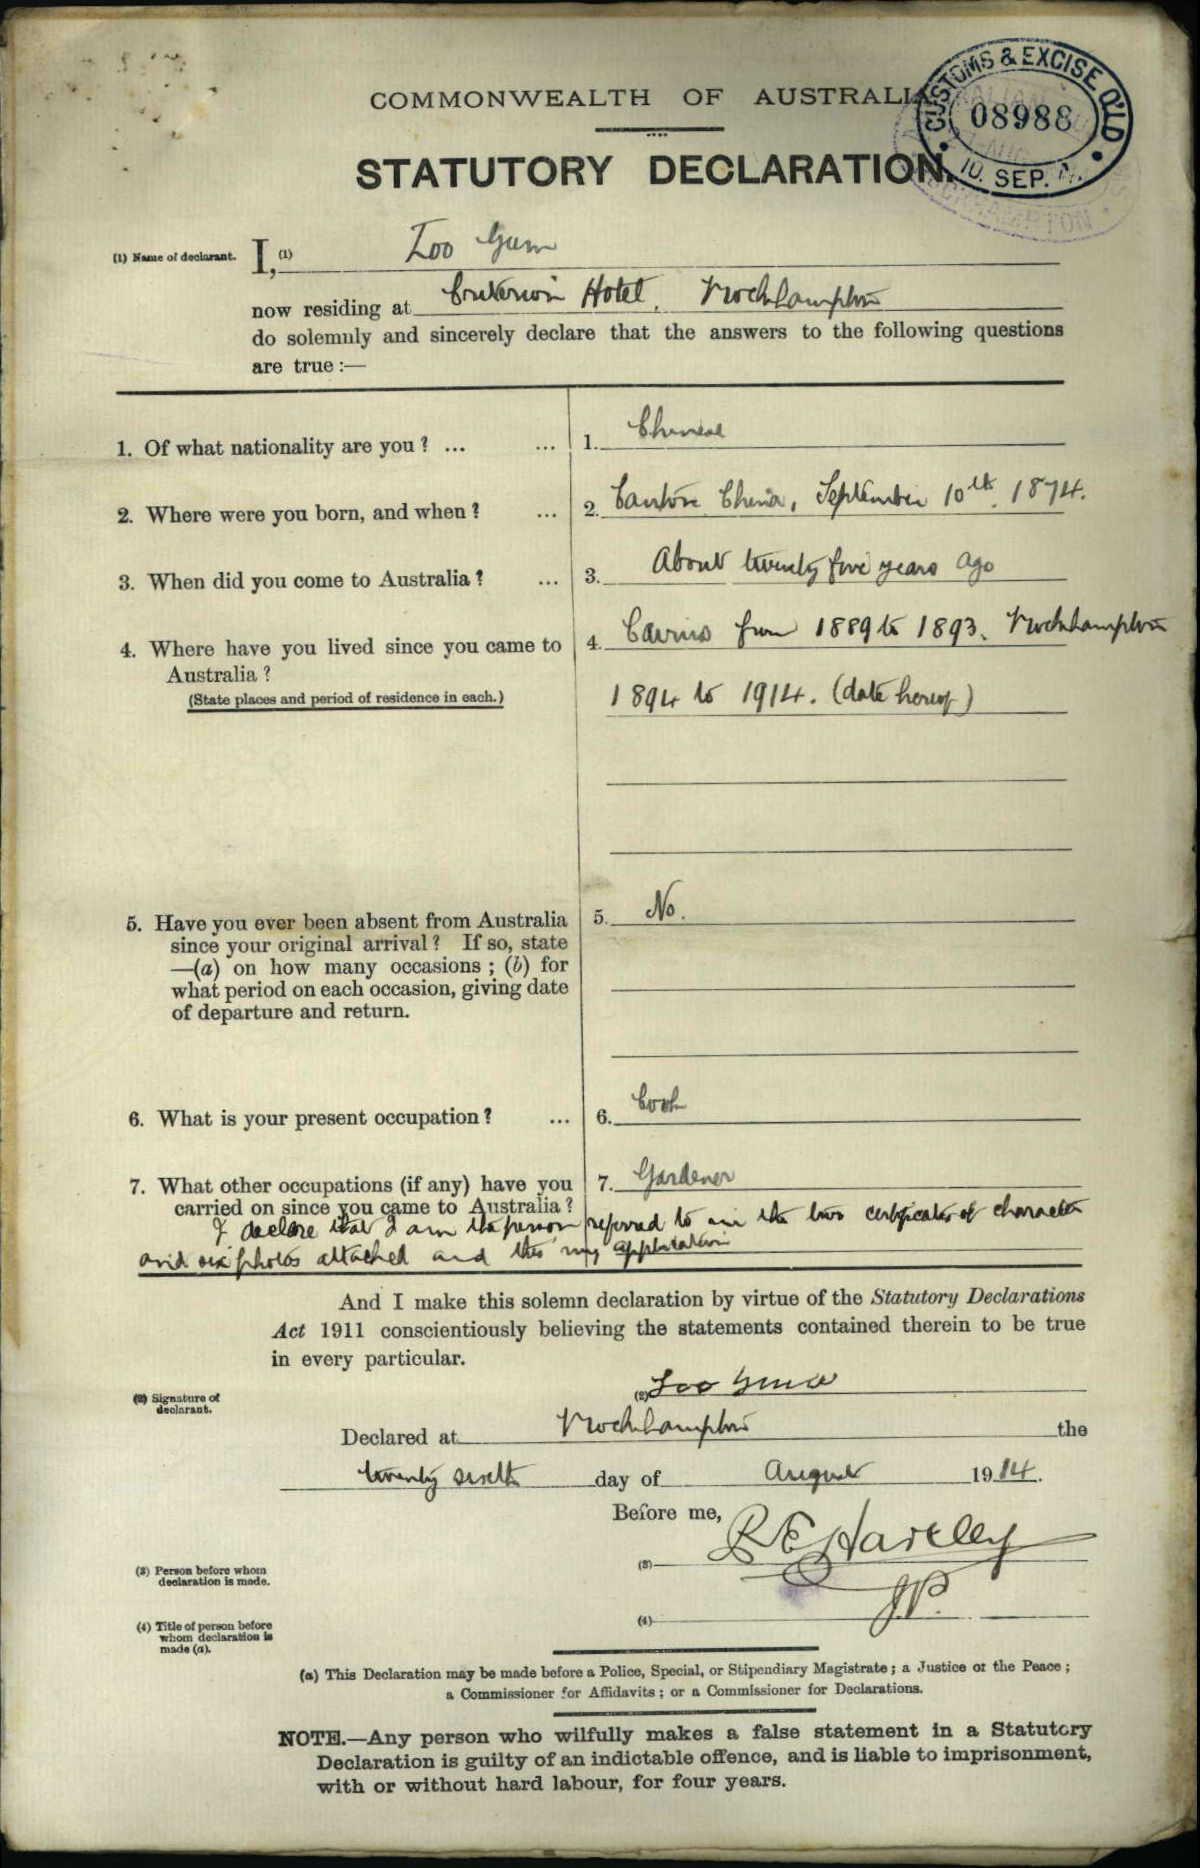 COMMONWEALTH OF AUSTRALIA
CUSTOMS & EXCISE Q'LD
08988
10. SEP.
STATUTORY DECLARATION.
(1) Name of declarant. I, (1) Loo Gum
now residing at Criterion Hotel, Rockhampton
do solemnly and sincerely declare that the answers to the following questions
are true :—
1. Of what nationality are you ? ... ... 1. Chinese
2. Where were you born, and when ? ... 2. Canton China, September 10th. 1874.
3. When did you come to Australia ? ... 3. About twenty five years ago
4. Where have you lived since you came to 4. Cairns from 1889 to 1893. Rockhampton
Australia ?
(State places and period of residence in each.) 1894 to 1914. (date hereof)
5. Have you ever been absent from Australia 5. No.
since your original arrival ? If so, state
—(a) on how many occasions ; (b) for
what period on each occasion, giving date
of departure and return.
6. What is your present occupation ? ... 6. Cook
7. What other occupations (if any) have you 7. Gardener
carried on since you came to Australia ?
I declare that I am the person referred to in the two certificates of character
and six photos attached and this my application
And I make this solemn declaration by virtue of the Statutory Declarations
Act 1911 conscientiously believing the statements contained therein to be true
in every particular.
(2) Signature of
declarant.
(2) Loo Gum
Declared at Rockhampton the
twenty sixth day of August 1914.
Before me,
(3) Person before whom
declaration is made.
(3) R E Hartley
(4) Title of person before
whom declaration is
made (a).
(4) J.P.
(a) This Declaration may be made before a Police, Special, or Stipendiary Magistrate ; a Justice of the Peace ;
a Commissioner for Affidavits ; or a Commissioner for Declarations.
NOTE.—Any person who wilfully makes a false statement in a Statutory
Declaration is guilty of an indictable offence, and is liable to imprisonment,
with or without hard labour, for four years.